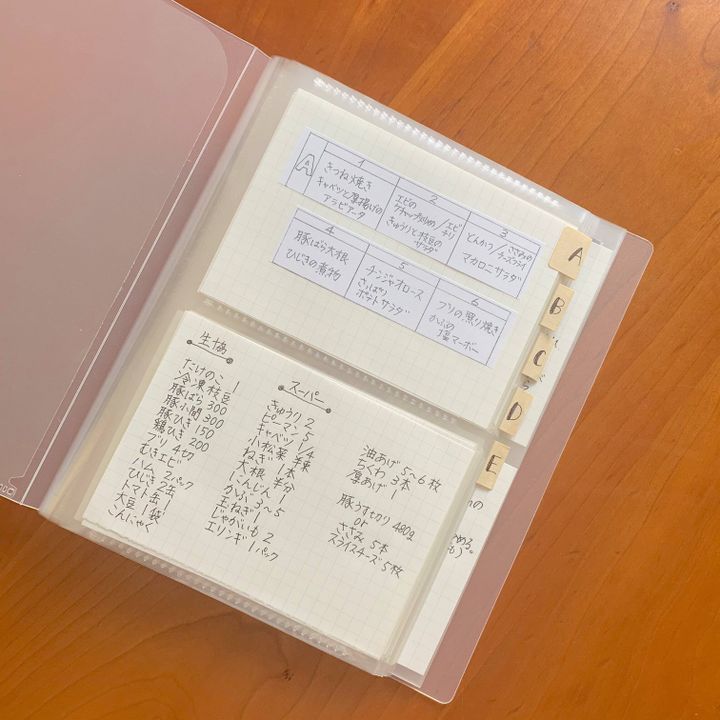 A
1
きつね焼き
キャベツと厚揚げの
アラビアータ
2
エビの
ケチャップ炒め/エビチリ
きゅうりと枝豆の
サラダ
3
とんかつ/ささみのチーズフライ
マカロニサラダ
4
豚ばら大根
ひじきの煮物
5
チンジャオロース
さっぱり
ポテトサラダ
6
ブリの照り焼き
かぶの
塩マーボー
A
B
C
D
E
生協
たけのこ
冷凍枝豆 1
豚ばら 300
豚小間 300
豚ひき 150
鶏ひき 200
ブリ 4切
むきエビ
ハム 2パック
ひじき 2缶
トマト缶 1
大豆 1袋
こんにゃく
スーパー
きゅうり 2
ピーマン 5
キャベツ 1/4
小松菜 半束
ねぎ 1本
大根 半分
にんじん 1
かぶ 3～5
玉ねぎ 1
じゃがいも 2
エリンギ 1パック
油あげ 5～6枚
ちくわ 3本
厚あげ 1
豚うす切り 480g
or
ささみ 5本
スライスチーズ 5枚